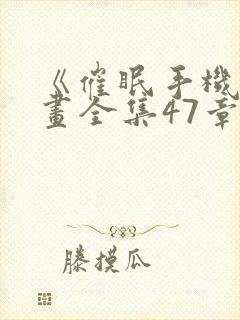 《催眠手機
畫全集47章
滕摸瓜